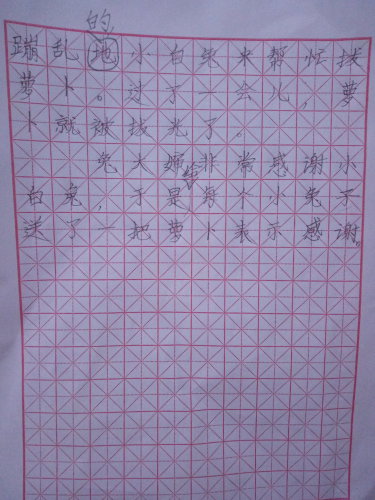 的
蹦乱地小白兔来帮忙拔
萝卜。过了一会儿，萝
卜就被拔光了。
兔大婶非常感谢小
白兔，于是，给每个小兔子
送了一把萝卜表示感谢。